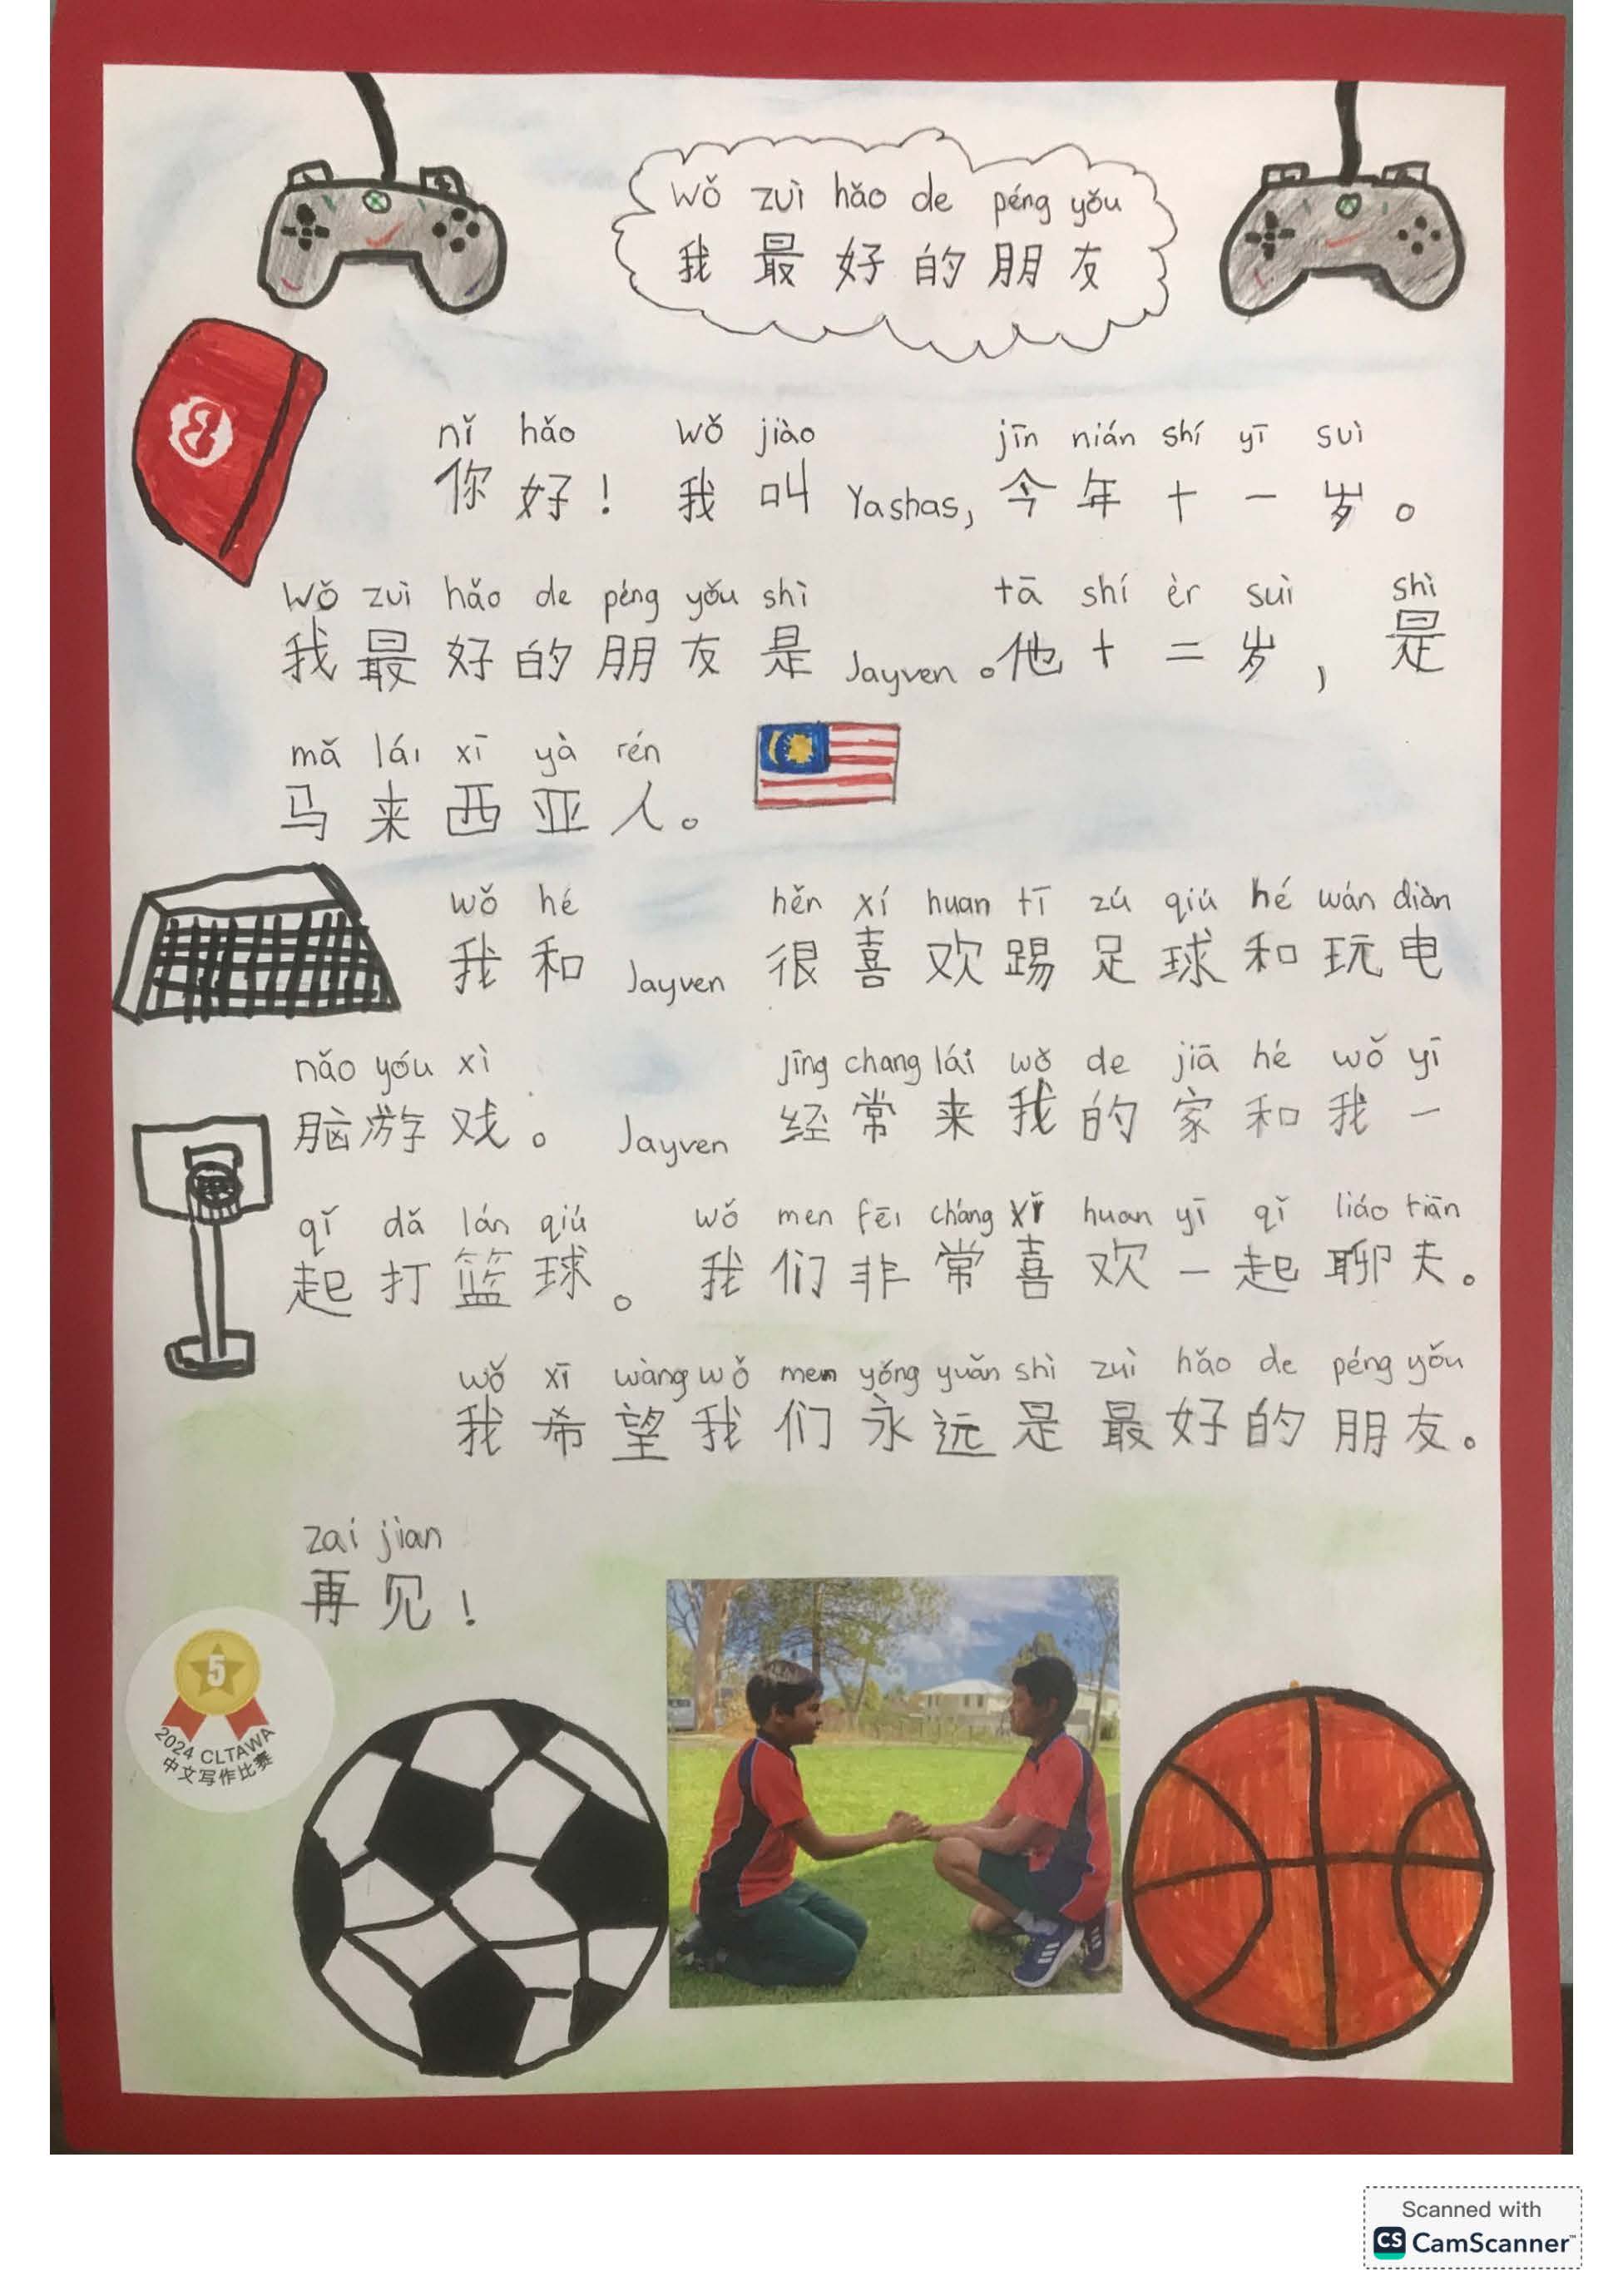 wǒ zuì hǎo de péng yǒu
我最好的朋友
nǐ hǎo wǒ jiào jīn nián shí yī suì
你好！我叫 Yashas, 今年十一岁。
wǒ zuì hǎo de péng yǒu shì tā shí èr suì shì
我最好的朋友是 Jayven。他十二岁，是
mǎ lái xī yà rén
马来西亚人。
wǒ hé hěn xí huan tī zú qiú hé wán diàn
我和 Jayven 很喜欢踢足球和玩电
nǎo yóu xì jīng chang lái wǒ de jiā hé wǒ yī
脑游戏。Jayven 经常来我的家和我一
qǐ dǎ lán qiú wǒ men fēi cháng xǐ huan yī qǐ liáo tiān
起打篮球。我们非常喜欢一起聊夫。
wǒ xī wàng wǒ men yǒng yuǎn shì zuì hǎo de péng yǒu
我希望我们永远是最好的朋友。
zai jian
再见！
5
2024 CLTAWA
中文写作比赛
Scanned with
CS CamScanner™